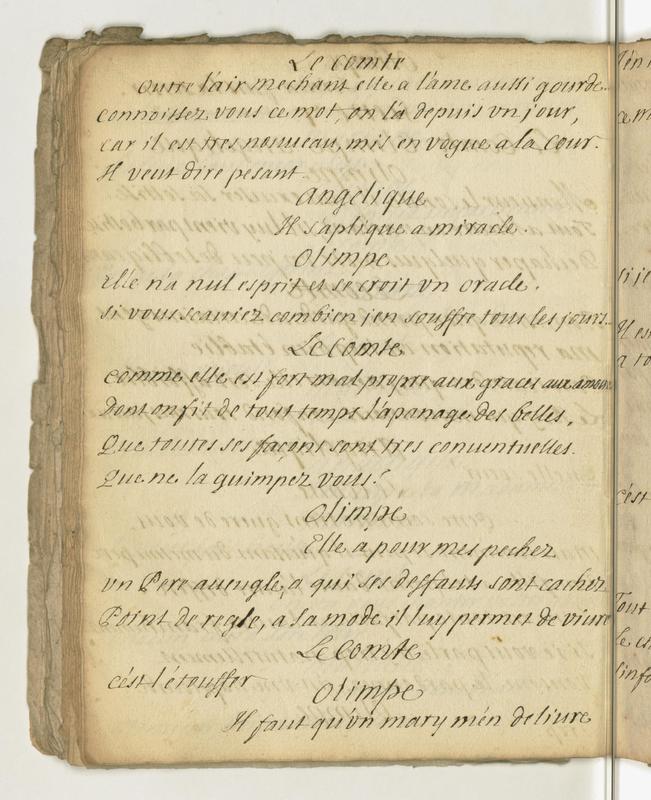 Le comte
Outre l'air mechant elle a l'ame aussi gourde
connoissez vous ce mot, on l'a depuis vn jour,
car il est tres nouueau, mis en vogue a la Cour.
Il veut dire pesant
Angelique
Il s'aplique a miracle.
Olimpe
Elle n'a nul esprit et se croit vn oracle.
si vous scauiez combien j'en souffre tous les jours..
Le comte
comme elle est fort mal propre aux graces aux amours
Dont on fit de tout temps l'apanage des belles,
Que toutes ses façons sont tres conuentuelles.
Que ne la guimpez vous?
Olimpe
Elle à pour mes pechez
vn Pere aueugle, a qui ses deffauts sont cachez
Point de regle, a sa mode il luy permet de viure
Le comte
c'ést l'étouffer
Olimpe
Il faut qu'vn mary m'én deliure
ce m
si je
Il es
a to
c'ést
Tout
Le ch